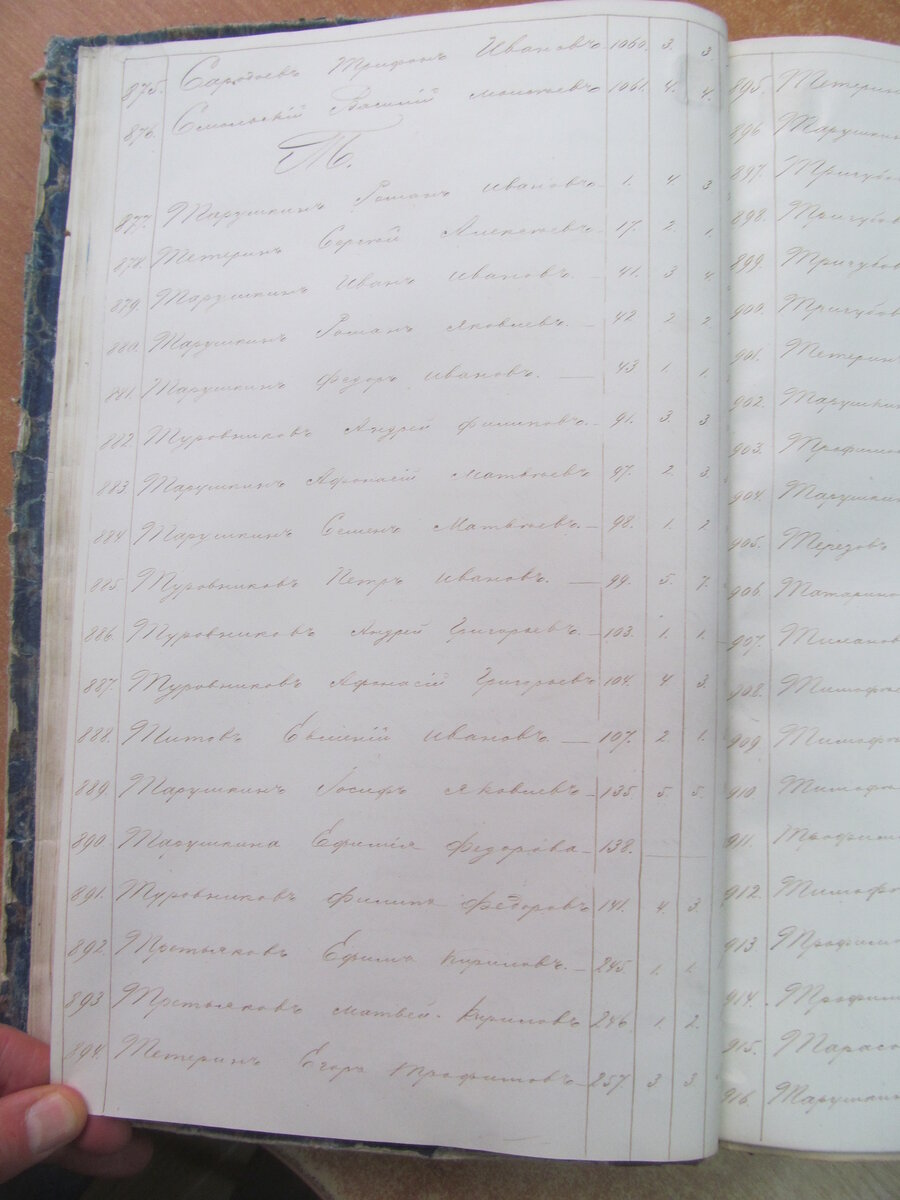 875. Саро Трифонъ Ивановъ 1060. 3. 3.
876. Смольскій Василій Моисѣевъ 1061. 4. 4.
Т.
877. Тарушкинъ Романъ Ивановъ 1. 4. 3
878. Тетеринъ Сергѣй Алексѣевъ 17. 2. 1.
879. Тарушкинъ Иванъ Ивановъ. 41. 3 4.
880. Тарушкинъ Романъ Яковлевъ. 42 2 2
881. Тарушкинъ Федоръ Ивановъ. 43 1. 1.
882. Туровниковъ Андрей Филиповъ. 91. 3. 3
883. Тарушкинъ Афонасій Матвѣевъ 97. 2. 3.
884. Тарушкинъ Семенъ Матвѣевъ. 98. 1. 2
885. Туровниковъ Петръ Ивановъ. 99. 5. 7.
886. Туровниковъ Андрей Григорьевъ. 103. 1. 1.
887. Туровниковъ Афанасій Григорьевъ 104. 4 3.
888. Титовъ Евменій Ивановъ. 107. 2. 1.
889. Тарушкинъ Іосифъ Яковлевъ 135. 5. 5.
890. Тарушкина Ефимія Федорова 138.
891. Туровниковъ Филипъ Федоровъ 141. 4. 3.
892. Третьяковъ Ефимъ Кириловъ. 245. 1. 1.
893 Третьяковъ Матвей Кириловъ 246. 1. 2.
894. Тетеринъ Егоръ Трофимовъ 257 3 3
895. Тетерин
896 Тарушкин
897. Тригубо
898. Тригубов
899. Тригубов
900. Тригубов
901. Тетерин
902. Тарушки
903. Трофимо
904. Тарушки
905. Терезовъ
906. Татарино
907. Тиманов
908. Тимофѣ
909. Тимофѣ
910. Тимофѣ
911. Трофим
912. Тимофѣ
913 Трофимо
914. Трофим
915. Тарасо
916. Тарушки